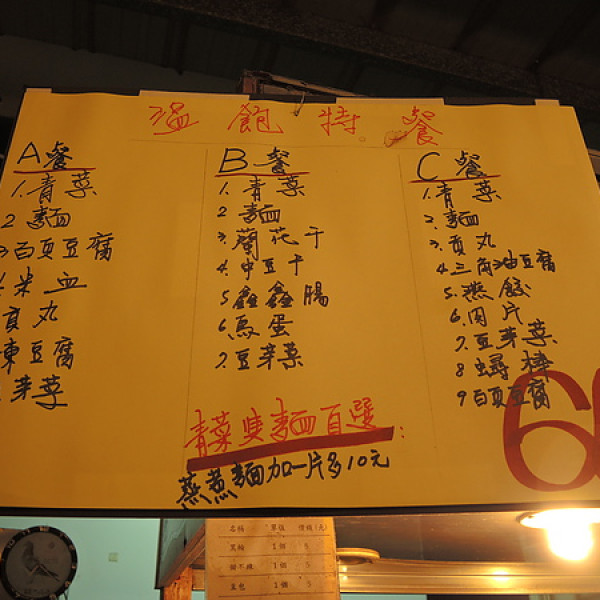 溫飽特餐
A餐
1.青菜
2麵
3百頁豆腐
米血
貢丸
凍豆腐
芽菜
B餐
1.青菜
2麵
3.蘭花干
4.中豆干
5鑫鑫腸
6.鳥蛋
7.豆芽菜
C餐
1.青菜
2.麵
3.貢丸
4三角油豆腐
5.燕餃
6.肉片
7.豆芽菜
8蟳棒
9百頁豆腐
6
青菜與麵自選:
蒸煮麵加一片多10元
名稱 單位 價錢(元)
黑輪 1個 5
1個 5
1個 5